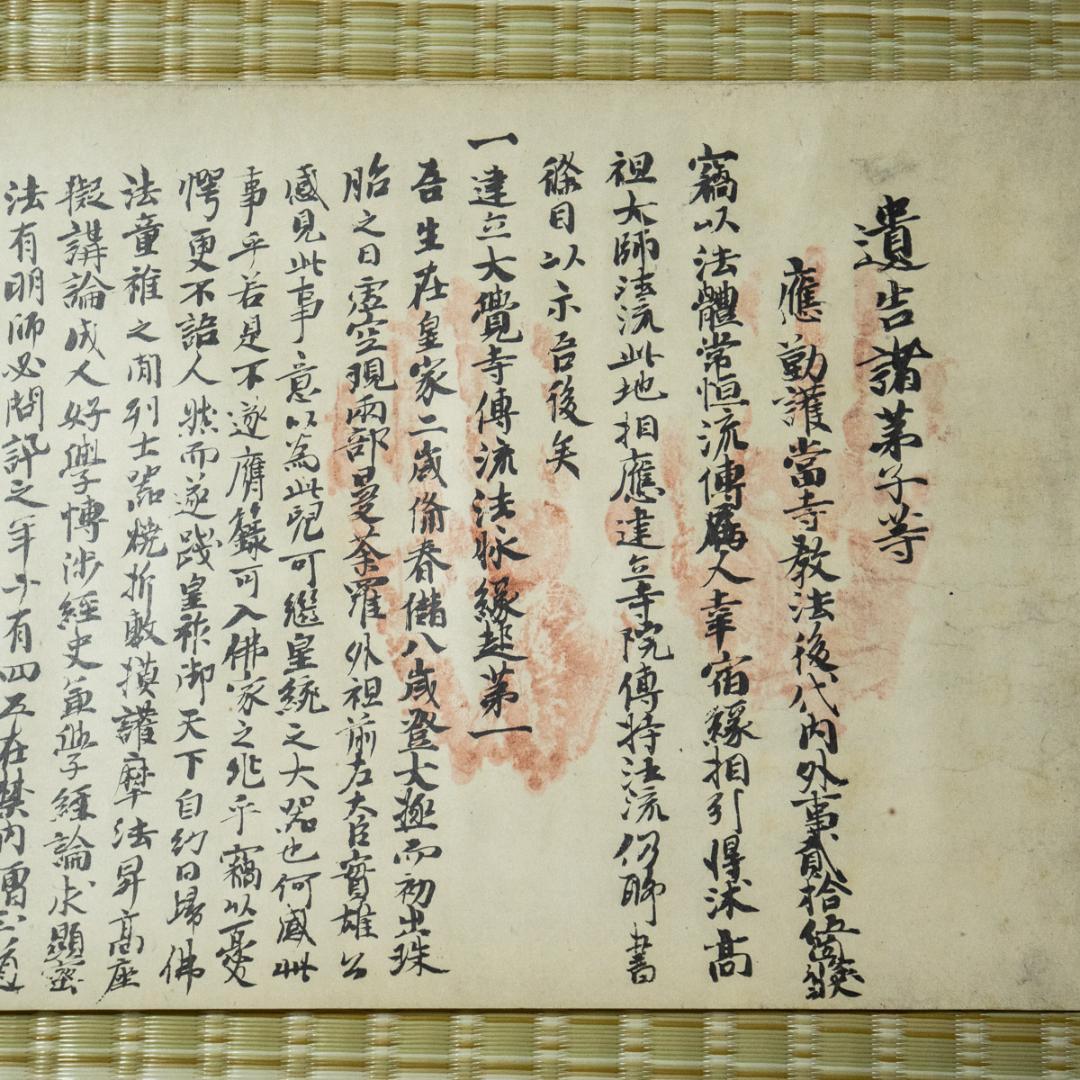 遺告諸弟子等
應勤護當寺教法後代内外事貳拾伍箇條
竊以法體常恒流傳屬人幸宿縁相引得沐高
祖大師法流此地相應建立寺院傳持法流仍聊書
條目以示吾後矣
一建立大覺寺傳流法脉縁起第一
吾生在皇家二歳備春儲八歳登大極而初出珠
胎之日虚空現兩部曼荼羅外祖前左大臣實雄公
感見此事意以為此兒可繼皇統之大器也何感此
事乎若是不逐膺籙可入佛家之兆乎竊以憂
愕更不語人然而遂踐皇祚御天下自約日歸佛
法童稚之間列土器焼折敷摸護摩法昇高座
擬講論成人好學博渉經史兼學經論求顯密
法有明師必問訊之年廿有四五在禁内